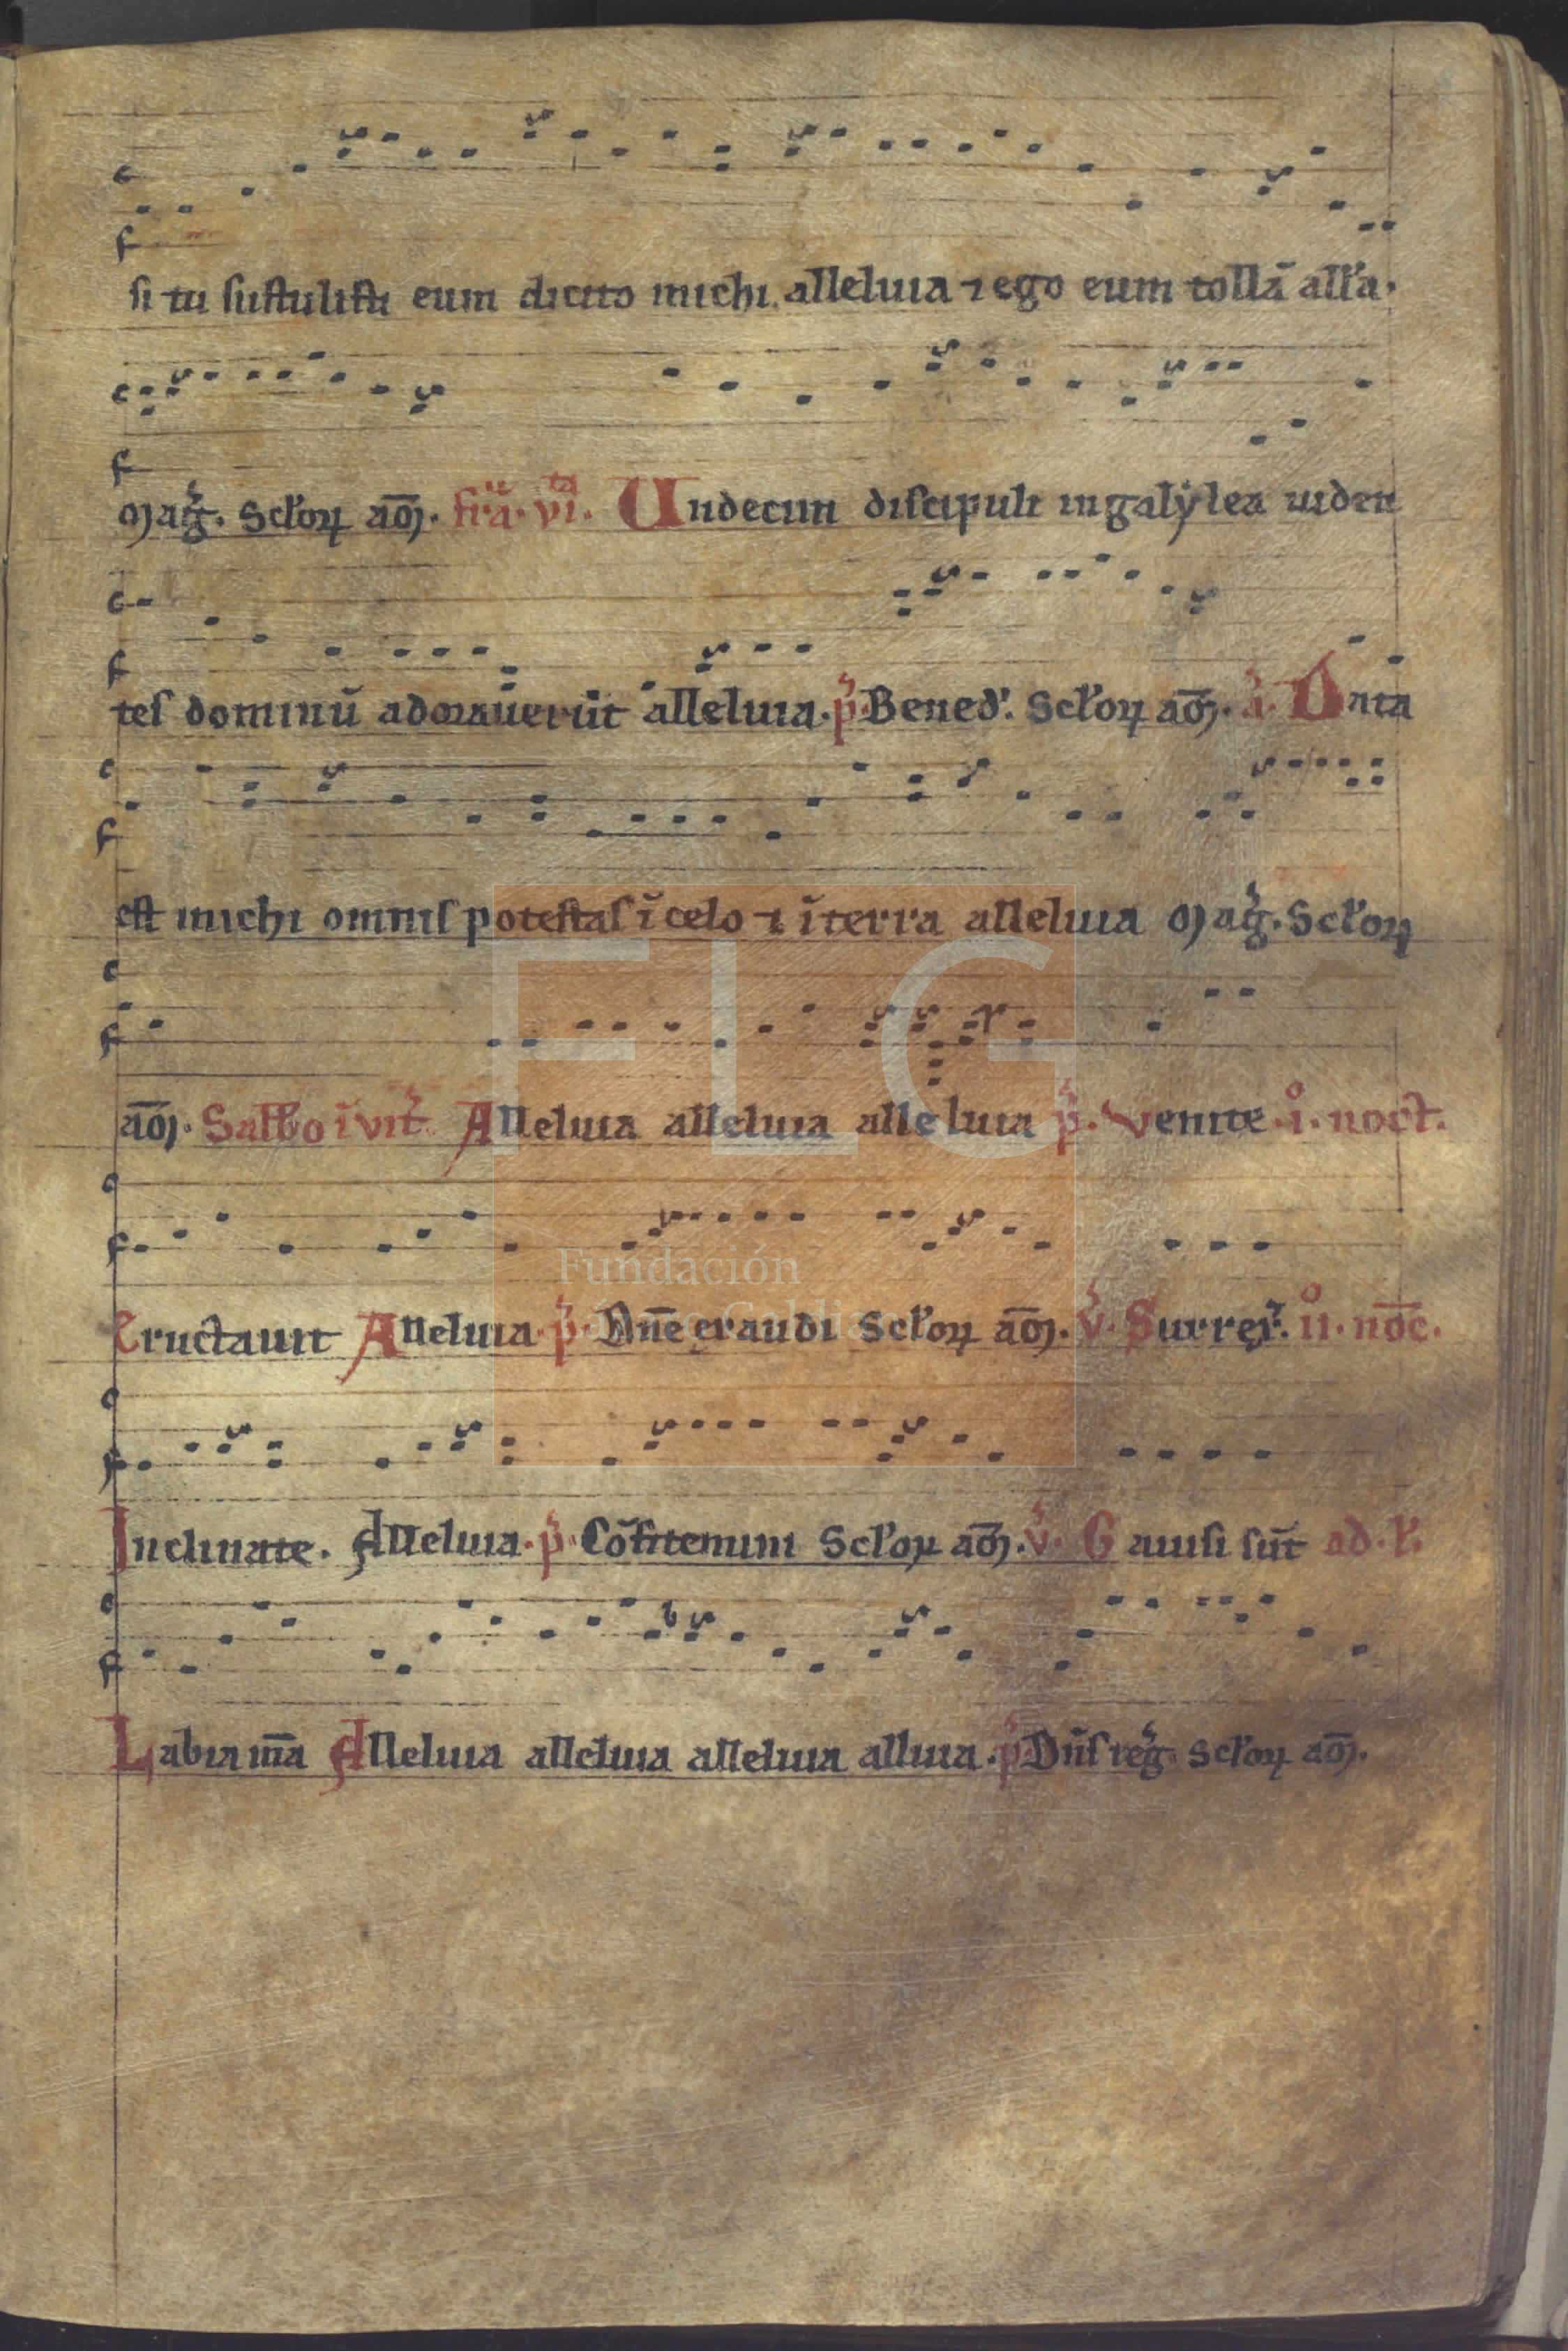 si tu sustulisti eum dicito michi alleluia ⁊ ego eum tollā all'a.
Mag̃. Sc̃loꝝ am̄. fr̃a. vi. Undecim discipuli in galẏlea uiden
tes dominū adorauerūt alleluia. p̃. Bened'. Sc̃loꝝ am̄. a. Data
est michi omnis potestas ī celo ⁊ ī terra alleluia Mag̃. Sc̃loꝝ
am̄. Sabb̃o ī vit̃. Alleluia alleluia alleluia p̃. Venite. i. noct.
Eructauit Alleluia. p̃. Dn̄e exaudi Sc̃loꝝ am̄. ṽ. Surrex̃. ii. noc̄.
Inclinate. Alleluia. p̃. Cōfitemini Sc̃loꝝ am̄. ṽ. Gauisi sūt ad. l'.
Labia m̄a Alleluia alleluia alleluia alluia. p̃. Dn̄s reg̃. Sc̃loꝝ am̄.
FLG
Fundación